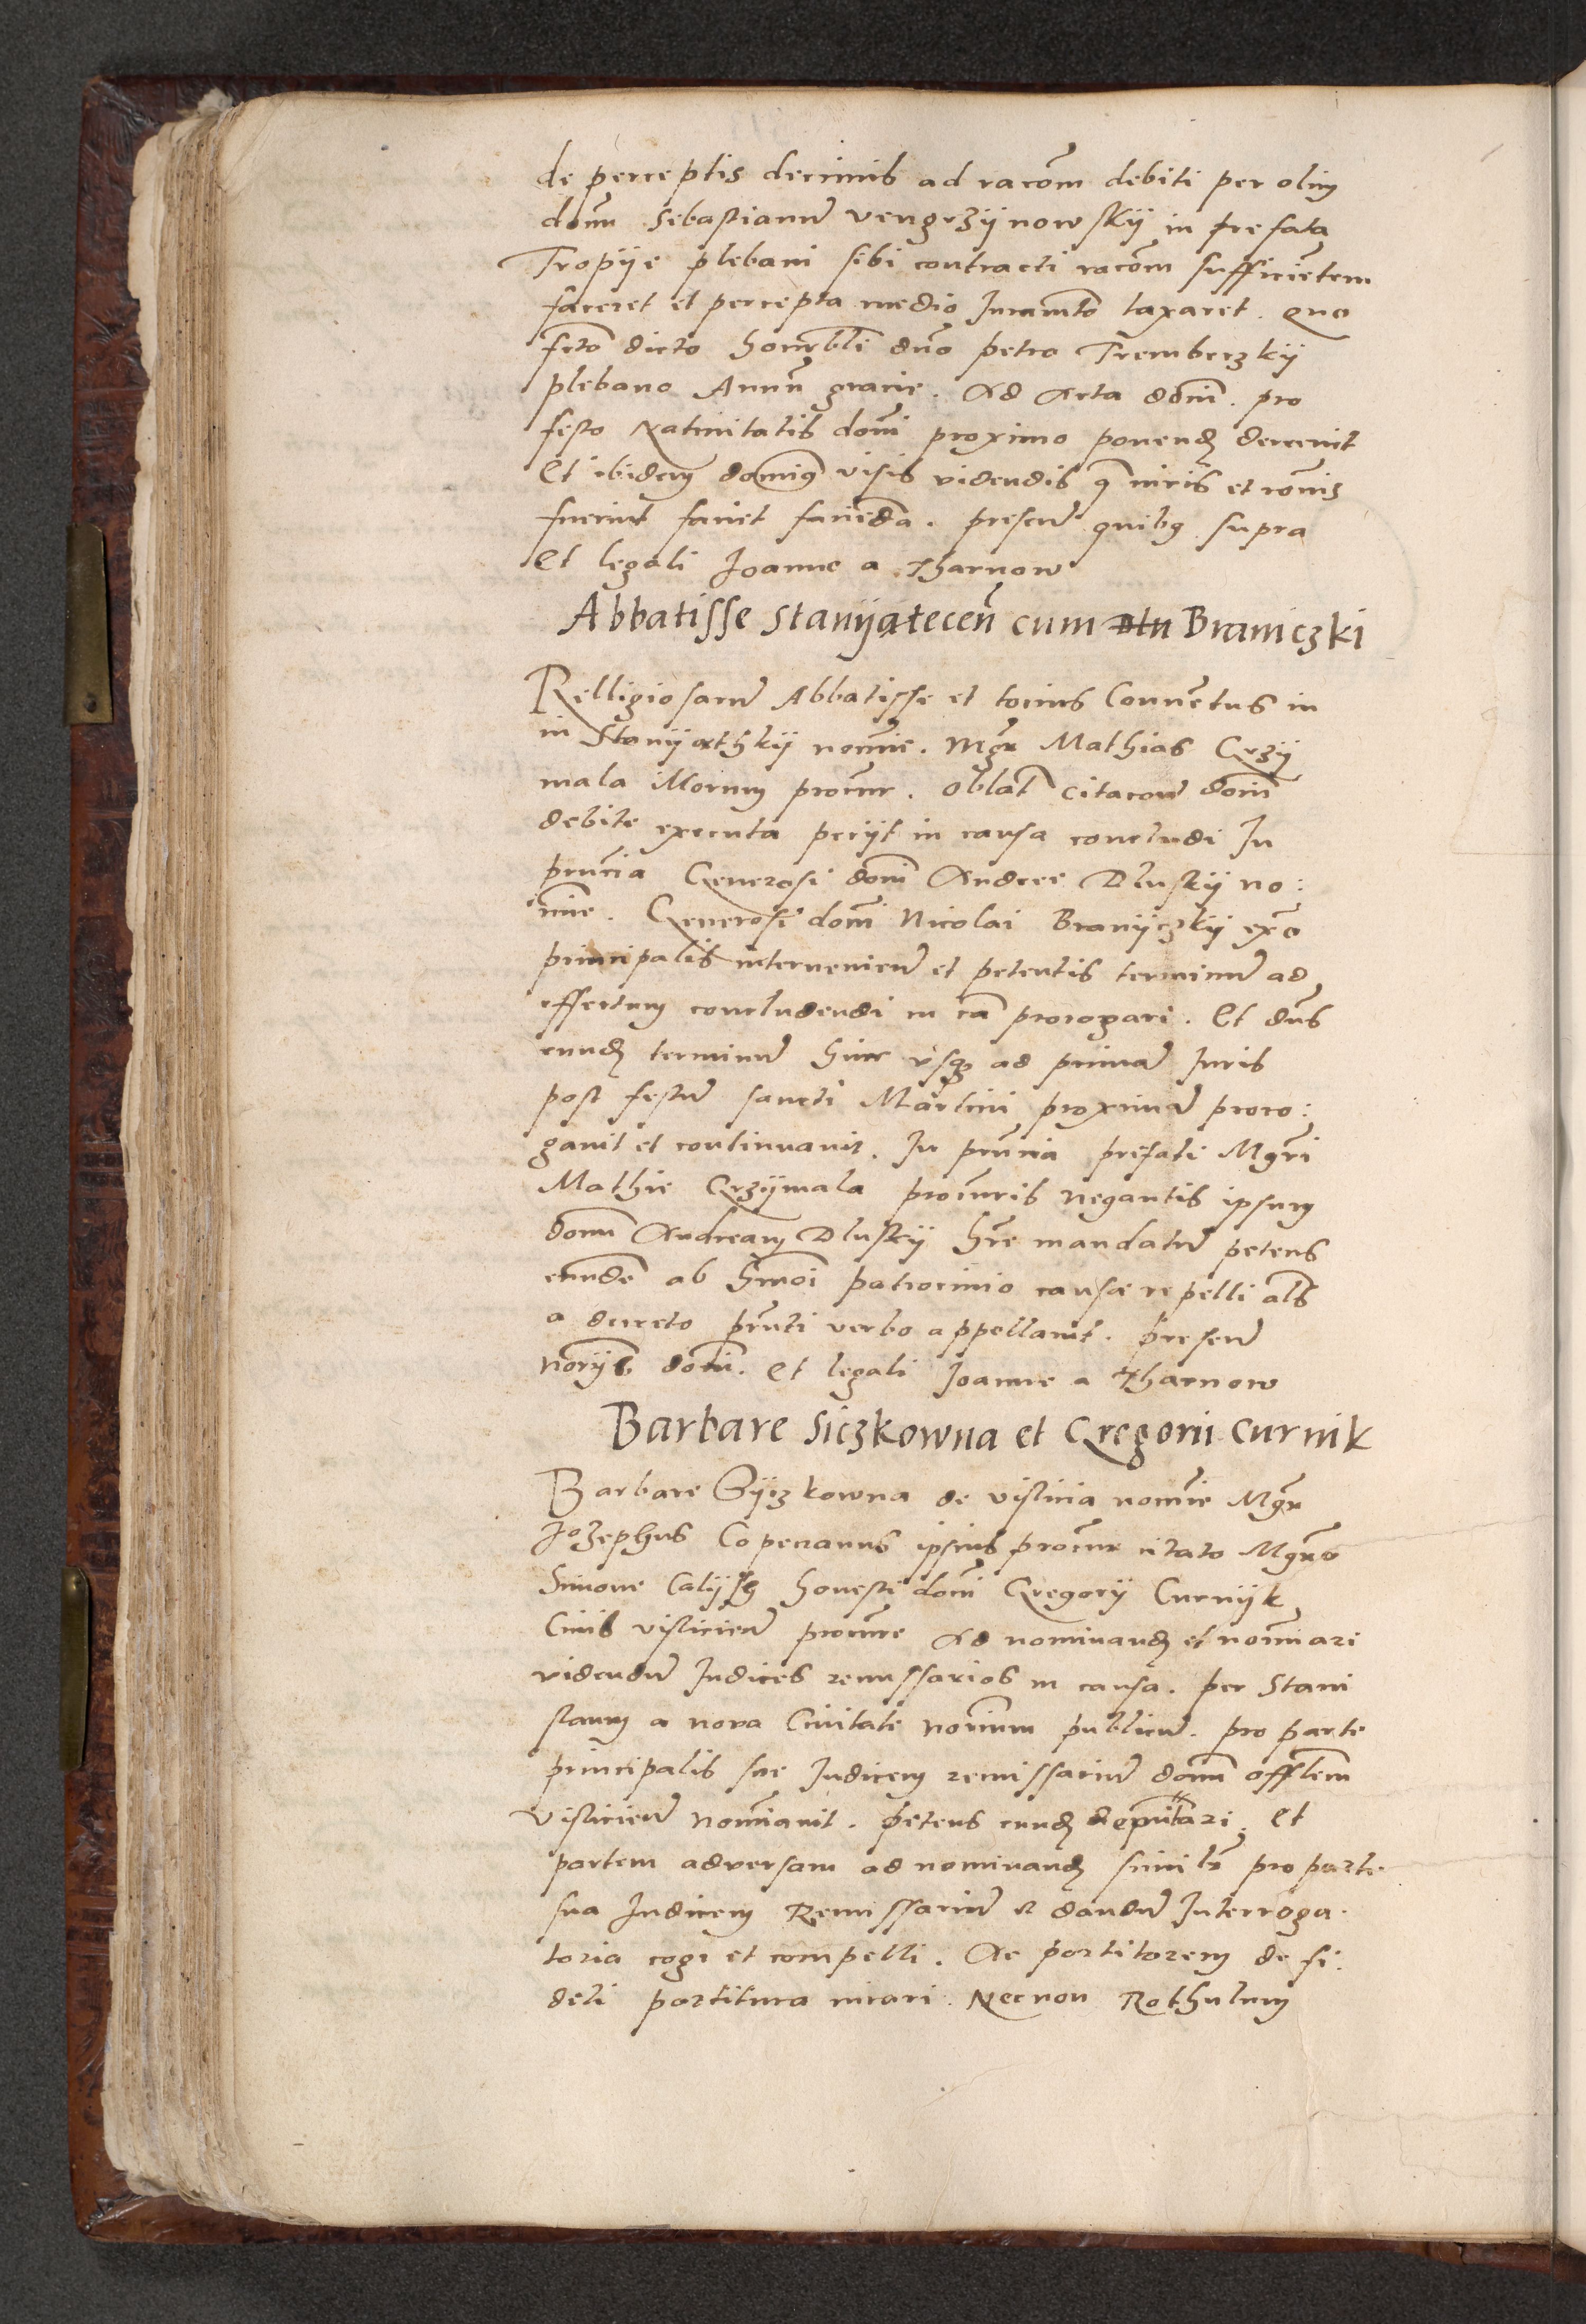 de perceptis decimis ad racom debiti per olim
donu Sebastianu vengrzÿnowskÿ in prefata
Tropÿe plebani sibi contracti racom sufficietem
faceret et percepta medio Juramto taxaret. Quo
fcto dicto honorbli dno petro Tremberzkÿ
plebano Annu gracie. Ad Acta donu. pro
festo Natiuitatis doni proximo ponend decreuit
Et ibidem dominus visis videndis q iuris et ronis
fuerint faciet facieda. presen quibus supra
Et legali Joanne a Tharnow
Abbatisse Stanÿatecen cum Dlu Braniczki
Relligiosaru Abbatisse et tocius Conuetus in
in Stanÿathkÿ nomie. Mgr Mathias Grzÿ
mala Morum procur. oblat citacoe doni
debite executa petÿt in causa concludi In
prncia Generosi doni Andree Dluskÿ no:
mie. Generosi doni Nicolai Branÿczkÿ exo
principalis intervenien et petentis terminu ad
effectum concludendi in ca prorogari. Et dns
eund terminu hinc vsq ad primã Juris
post festu sancti Martini proximã proro:
gauit et continuauit. In prncia prefati Mgri
Mathie Grzÿmala procuris negantis ipsum
donu Andream Dluskÿ hre mandatu petens
eunde ab hmoi patrocinio causæ repelli als
a decreto prnti verbo appellauit. presen
norÿs doni. et legali Joanne a Tharnow
Barbare Siczkowna et Gregorii Curnik
Barbare Sÿczkowna de vislicia nomie Mgr
Jozephus Copecranus ipsius procur citato Mgro
Simone Calÿsz honesti doni Gregorÿ Curnÿk
Ciuis vislicien procure Ad nominand et nomiari
videndu Judices remissarios in causa. per Stani
slaum a noua Ciuitate norium publicu. pro parte
principalis sue Judicem remissariu donu offlem
vislicien nomiauit. petens eund deputari. et
partem adversam ad nominand simili pro parte
sua Judicem Remissariu et dandu Interroga.
toria cogi et compelli. Ac portitorem de fi.
deli portitura iurari. Necnon Rothulum